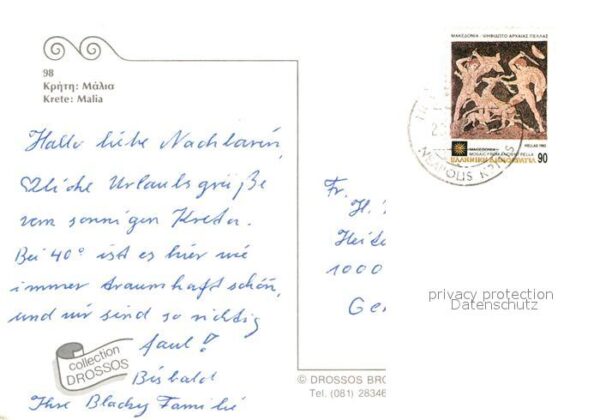 98
Κρήτη: Μάλια
Krete: Malia
Hallo liebe Nachbarin,
♡liche Urlaubsgrüße
vom sonnigen Kreta.
Bei 40° ist es hier wie
immer traumhaft schön,
und wir sind so richtig
faul!
Bis bald
Ihre Familie
collection
DROSSOS
ΜΑΚΕΔΟΝΙΑ - ΨΗΦΙΔΩΤΟ ΑΡΧΑΙΑΣ ΠΕΛΛΑΣ
HELLAS 1992
MAKEDONIA
MOSAIC
PELLA
ΕΛΛΗΝΙΚΗ ΔΗΜΟΚΡΑΤΙΑ 90
Fr.
H.
1000
Ge
privacy protection
Datenschutz
© DROSSOS BRO
Tel. (081) 28346